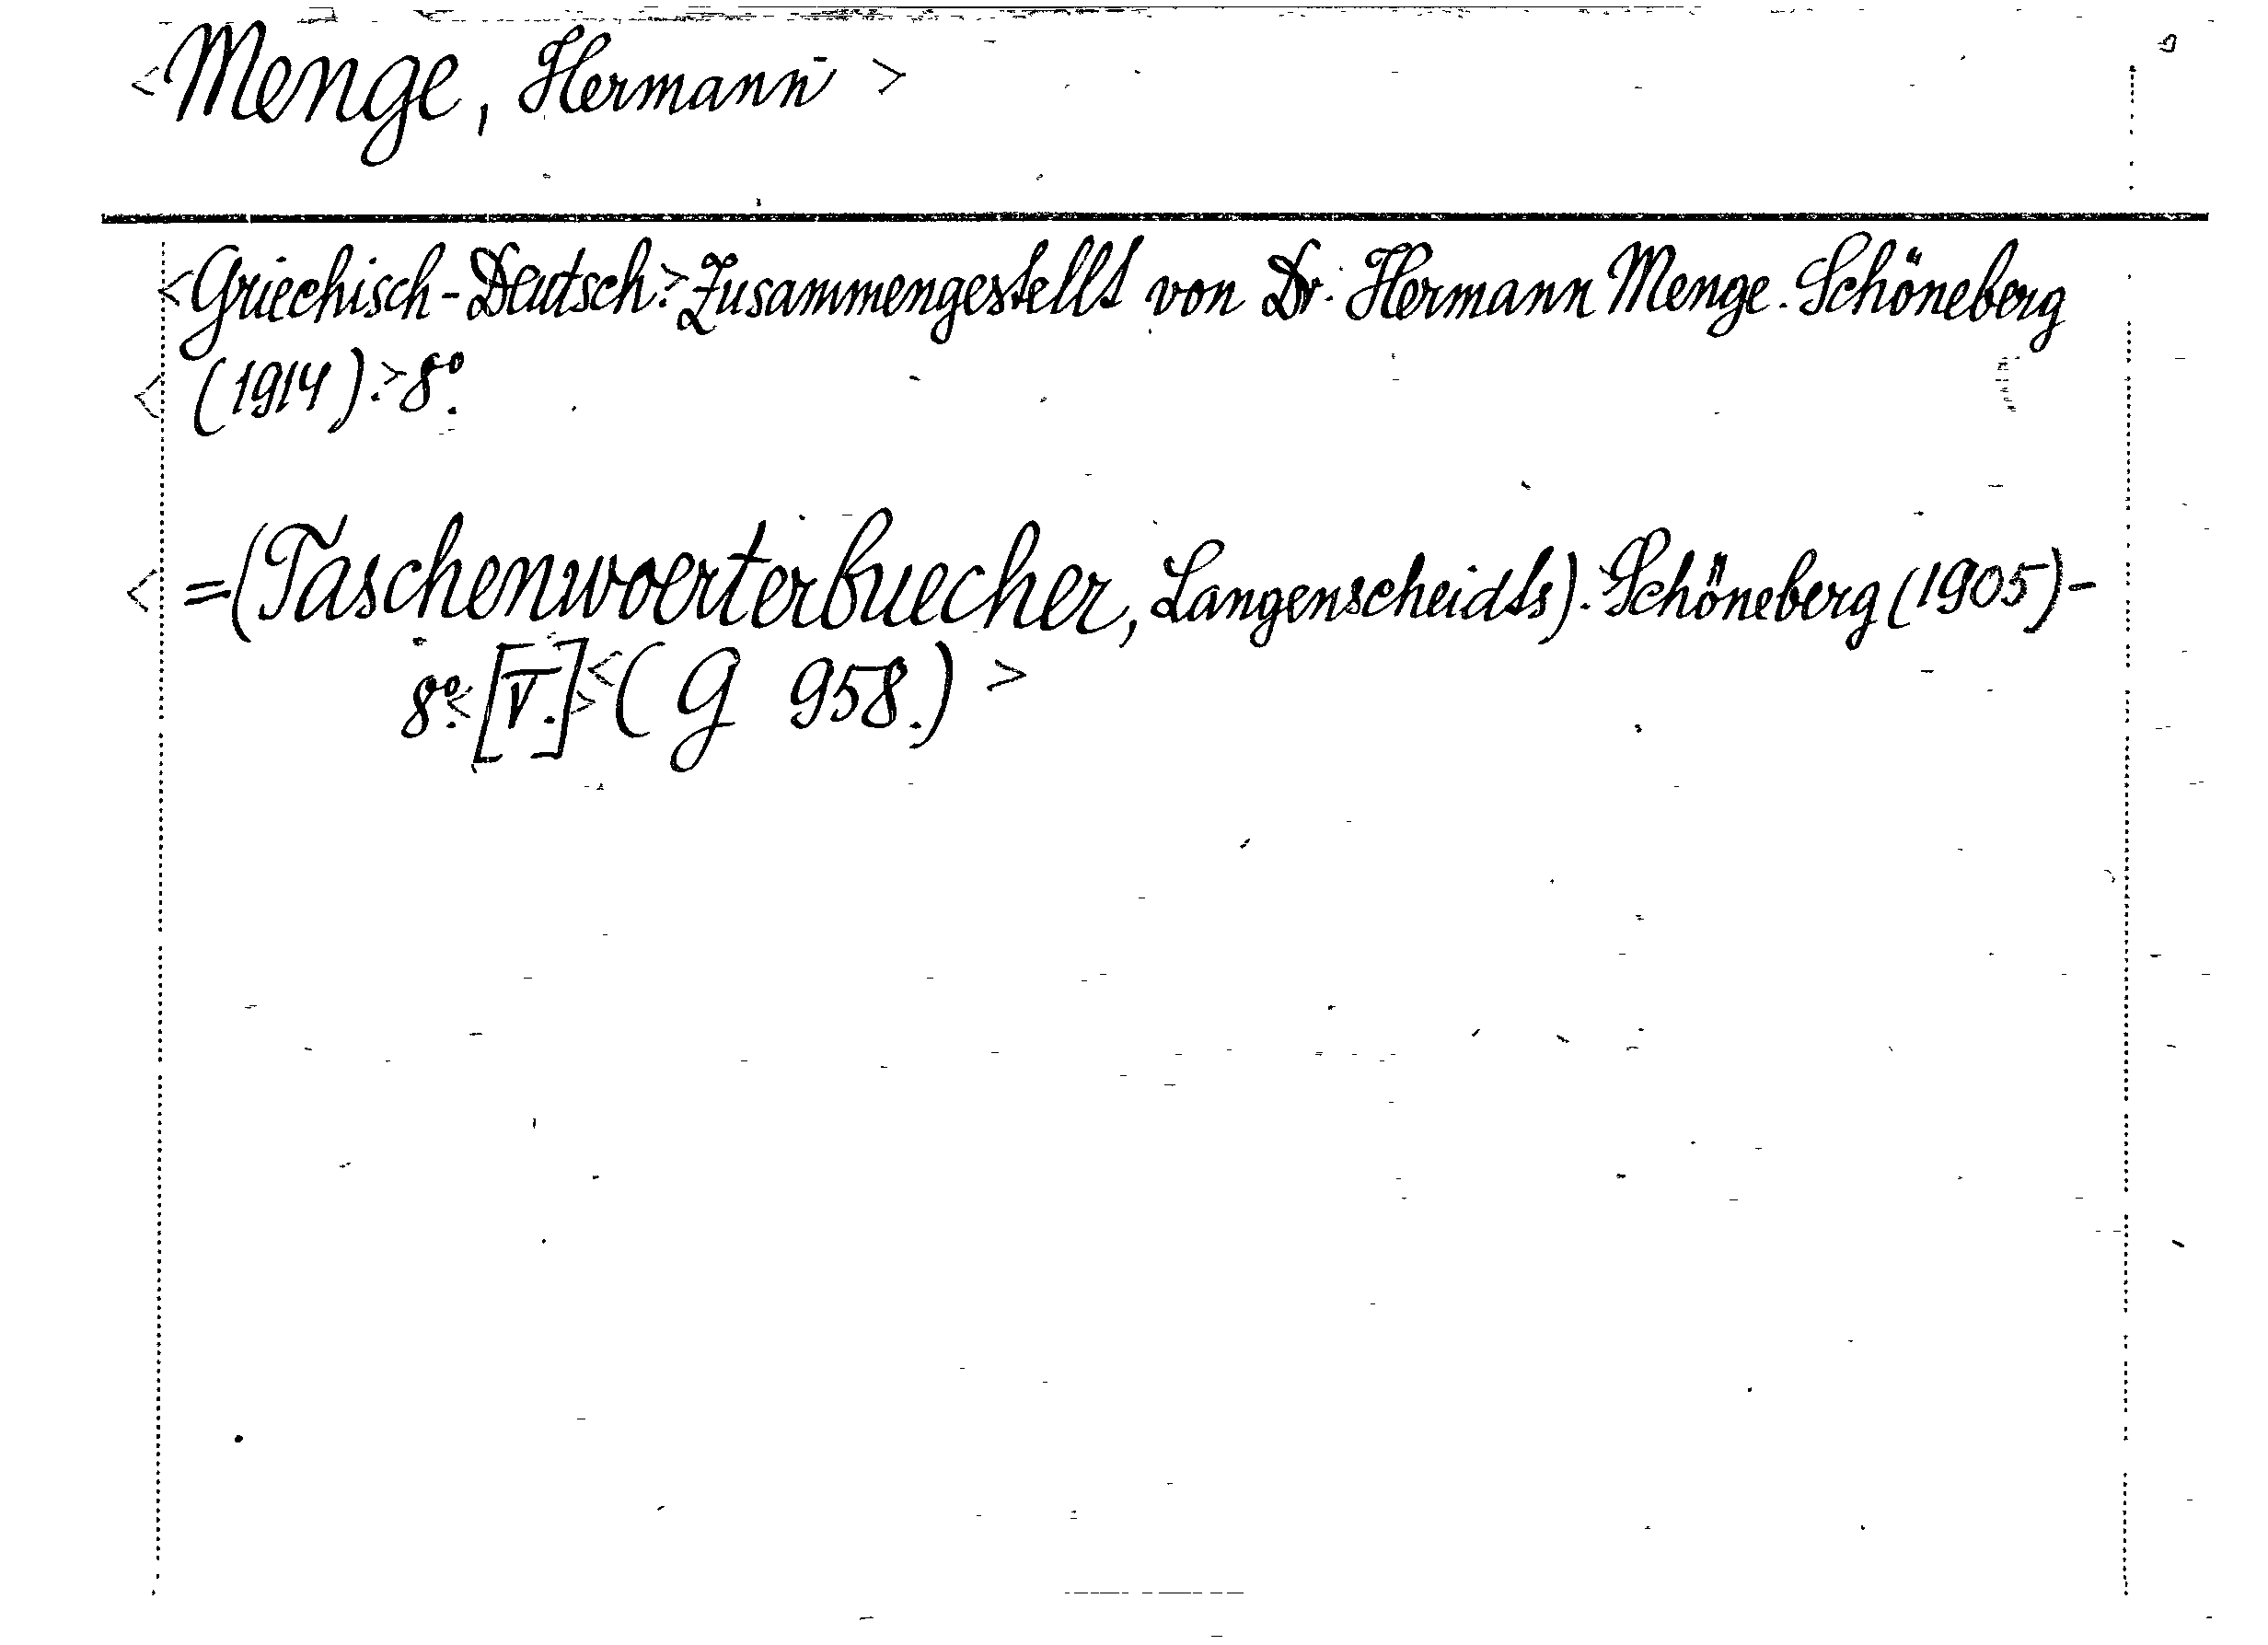 <Menge, Hermann>
<Griechisch-Deutsch.> Zusammengestellt von Dr. Hermann Menge. Schöneberg
<(1914).> 8º.
<=(Taschenwoerterbuecher, Langenscheidts). Schöneberg (1905)-
8º.<[V.]><(G 958.)>